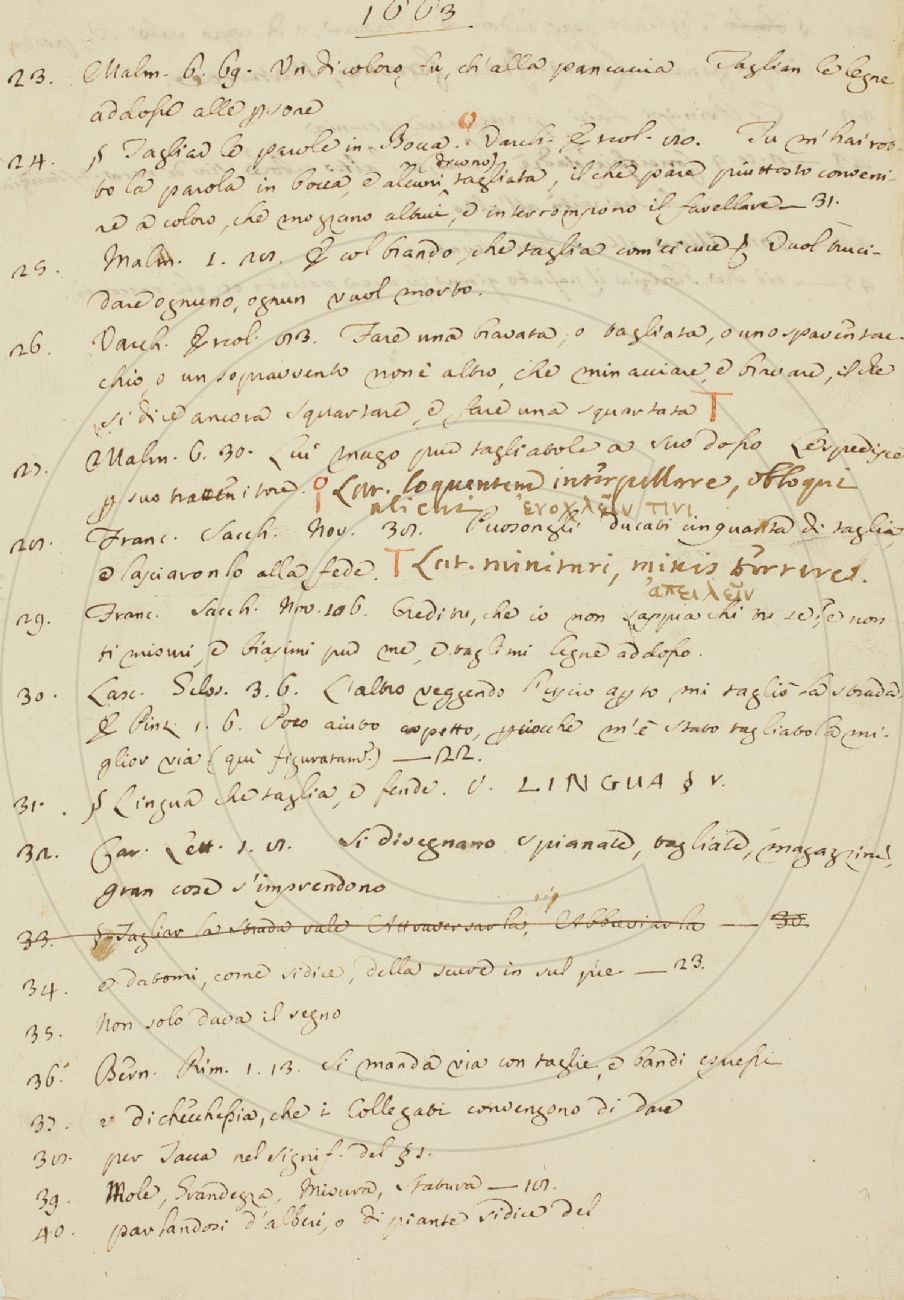 1663.
23. Malm. 6. 69. Un di coloro fu, ch'alla pancaccia Taglian le legne
addosso alle psone
24. § Tagliar le parole in Bocca. Varch. Ercol. 80. Tu m'hai rot-
(dicono)
to la parola in bocca, e alcuni tagliata, il che pare piuttosto conveni-
re a coloro, che mozzano altrui, e interrompono il favellare — 31.
25. Malm. 1. 28. E col brando, che taglia com'ei cuce § Vuol truci-
dare ognuno, ognun vuol morto.
26. Varch. Ercol. 83. Fare una bravata, o tagliata, o uno spaventac-
chio, o un sopravvento non è altro, che minacciare, e bravare, il che
si dice ancora squartare, e fare una squartata T
27. Malm. 6. 30. Lui mago pur tagliatole a suo dosso Le spedisce
p suo trattenitore. Lat. loquentem interpellare, obloqui
alicui ἐνοχλεῖν τινι
28. Franc. Sacch. Nov. 38. Puosongli ducati cinquanta di taglia,
e lasciaronlo alla fede. T Lat. minitari, minis terrere.
ἀπειλεῖν
29. Franc. Sacch. Nov. 106. Credi tu, che io non sappia chi tu se', e non
ti muovi, e biasimi pur me, e taglimi legne addosso.
30. Lasc. Gelos. 3. 6. L'altro veggendo l'uscio apto mi tagliò la strada.
E Pinz. 1. 6. Poco aiuto aspetto, pciocchè m'è stato tagliato la mi-
glior via (quì figuratam.) — 22.
31. § Lingua che taglia, e fende. V. LINGUA § V.
32. Car. Lett. 1. 8. Si disegnano spianate, tagliate, magazzini,
gran cose s'imprendono
33. § Tagliar la strada vale Attraversarla, Abbreviarla — 30.
34. e datomi, come si dice, della scure in sul piè — 23.
35. Non solo dava il segno
36. Bern. Rim. 1. 13. Si manda via con taglie, e bandi espressi
37. e di checchessia, che i Collegati convengono di dare
38. per Tacca nel signif. del § 1.
39. Mole, Grandezza, Misura, Statura — 18.
40. parlandosi d'alberi, o di piante si dice del